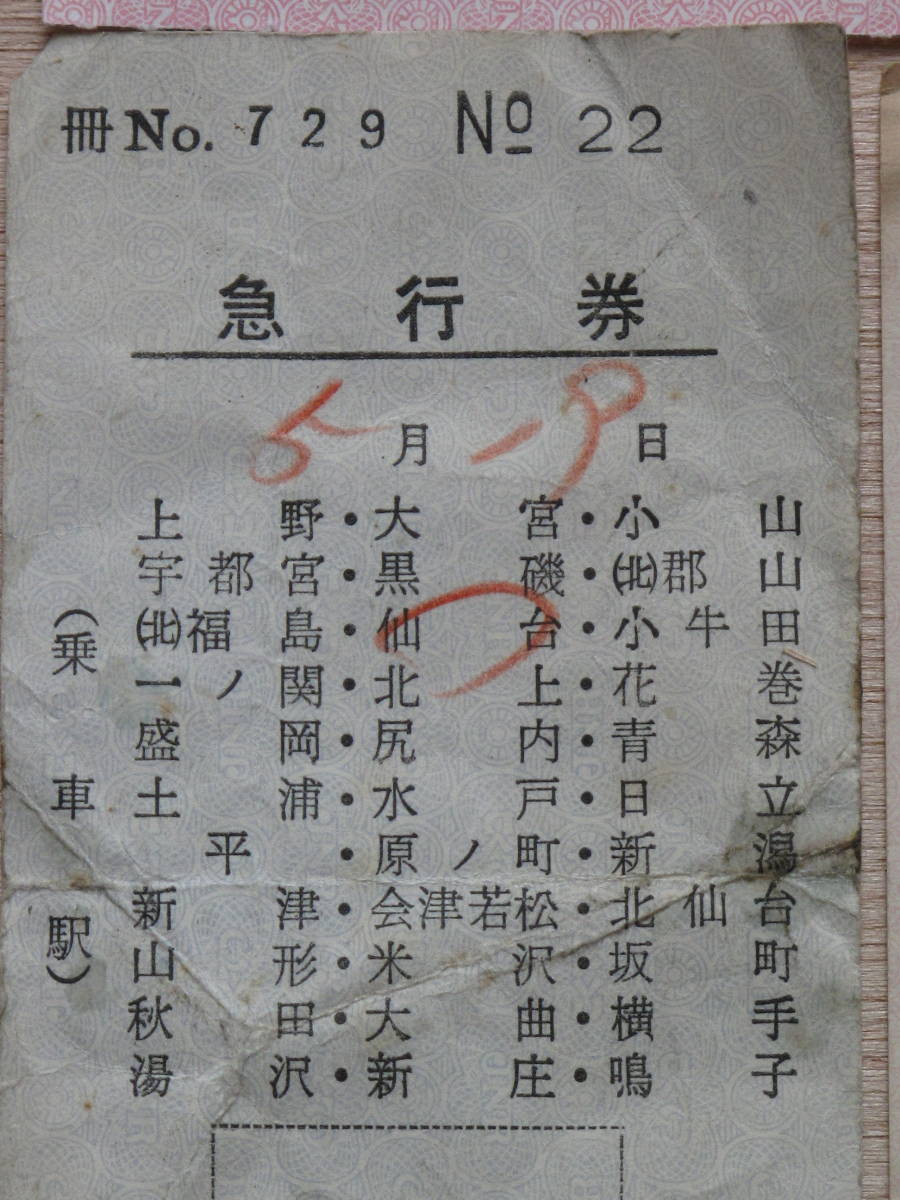 冊No. 729 No 22
急行券
5月19日
(乗車駅)
上野・大宮・小山
宇都宮・黒磯・(北)郡山
(北)福島・仙台・小牛田
一ノ関・北上・花巻
盛岡・尻内・青森
土浦・水戸・日立
平・原ノ町・新潟
新津・会津若松・北仙台
山形・米沢・坂町
秋田・大曲・横手
湯沢・新庄・鳴子